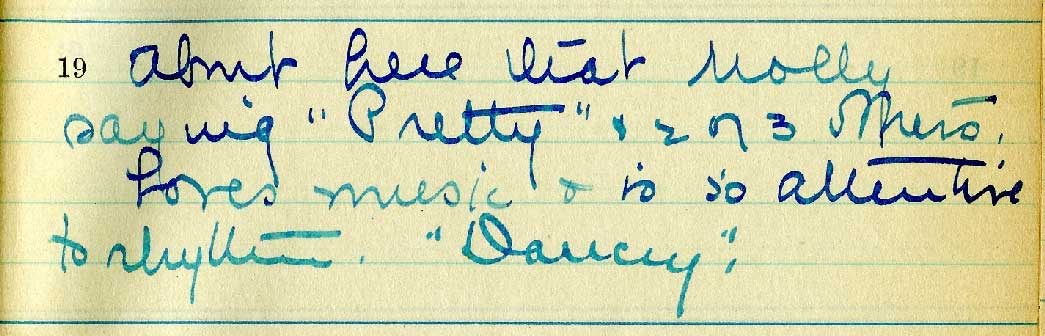 19 About here that Molly
saying "Pretty" & 2 or 3 others.
Loves music & is so attentive
to rhythm. "Dancey".